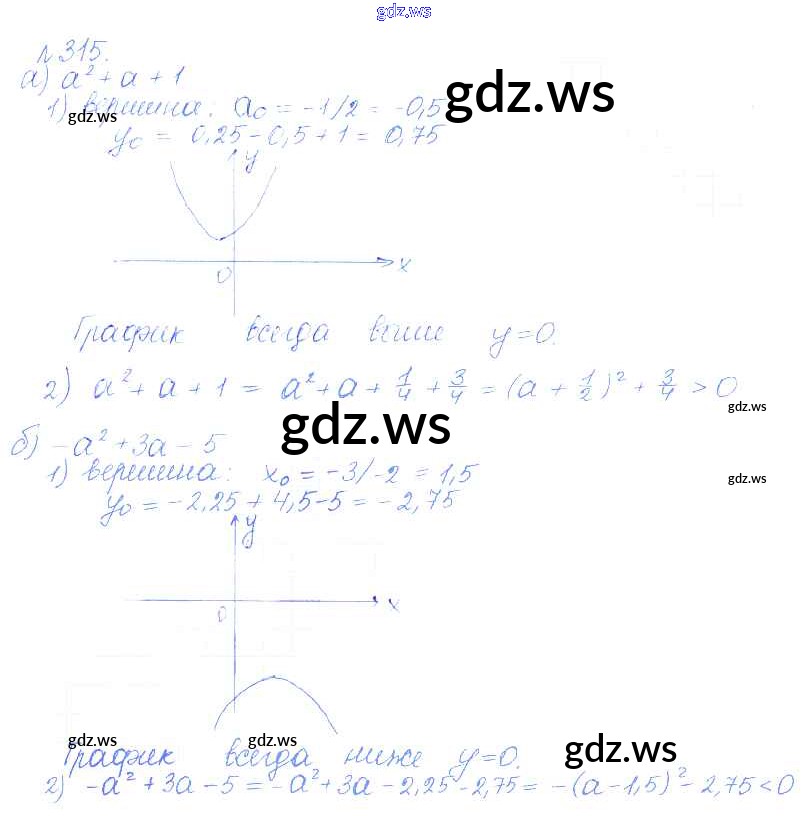 gdz.ws
№315.
а) a² + a + 1
gdz.ws
1) вершина: a₀ = -1/2 = -0,5
gdz.ws
y₀ = 0,25 - 0,5 + 1 = 0,75
y
gdz.ws
0 x
График всегда выше y=0.
2) a² + a + 1 = a² + a + 1/4 + 3/4 = (a + 1/2)² + 3/4 > 0
gdz.ws
gdz.ws
б) -a² + 3a - 5
1) вершина: x₀ = -3/-2 = 1,5
gdz.ws
y₀ = -2,25 + 4,5 - 5 = -2,75
y
0 x
gdz.ws gdz.ws gdz.ws
График всегда ниже y=0.
2) -a² + 3a - 5 = -a² + 3a - 2,25 - 2,75 = -(a - 1,5)² - 2,75 < 0